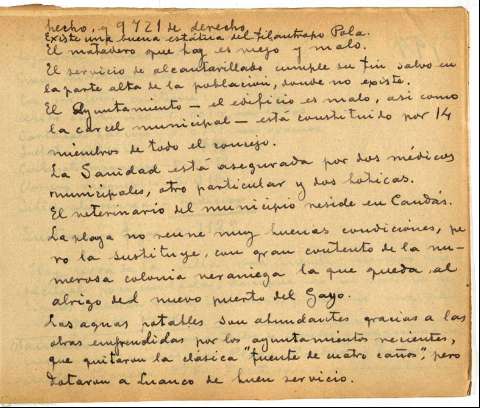 hecho, y 9721 de derecho.
Existe una buena estátua del filantropo Pola.
El matadero que hay es viejo y malo.
El servicio de alcantarillado cumple su fin salvo en
la parte alta de la poblacion, donde no existe.
El Ayuntamiento - el edificio es malo, asi como
la carcel municipal - está constituido por 14
miembros de todo el consejo.
La Sanidad está asegurada por dos médicos
municipales, otro particular y dos boticas.
El veterinario del municipio reside en Candás.
La playa no reune muy buenas condiciones, pe
ro la sustituye, con gran contento de la nu-
merosa colonia veraniega la que queda, al
abrigo del nuevo puerto del Gayo.
Las aguas potables son abundantes gracias a las
obras emprendidas por los ayuntamientos recientes,
que quitaron la clásica "fuente de cuatro caños", pero
dotaron a Luanco de buen servicio.